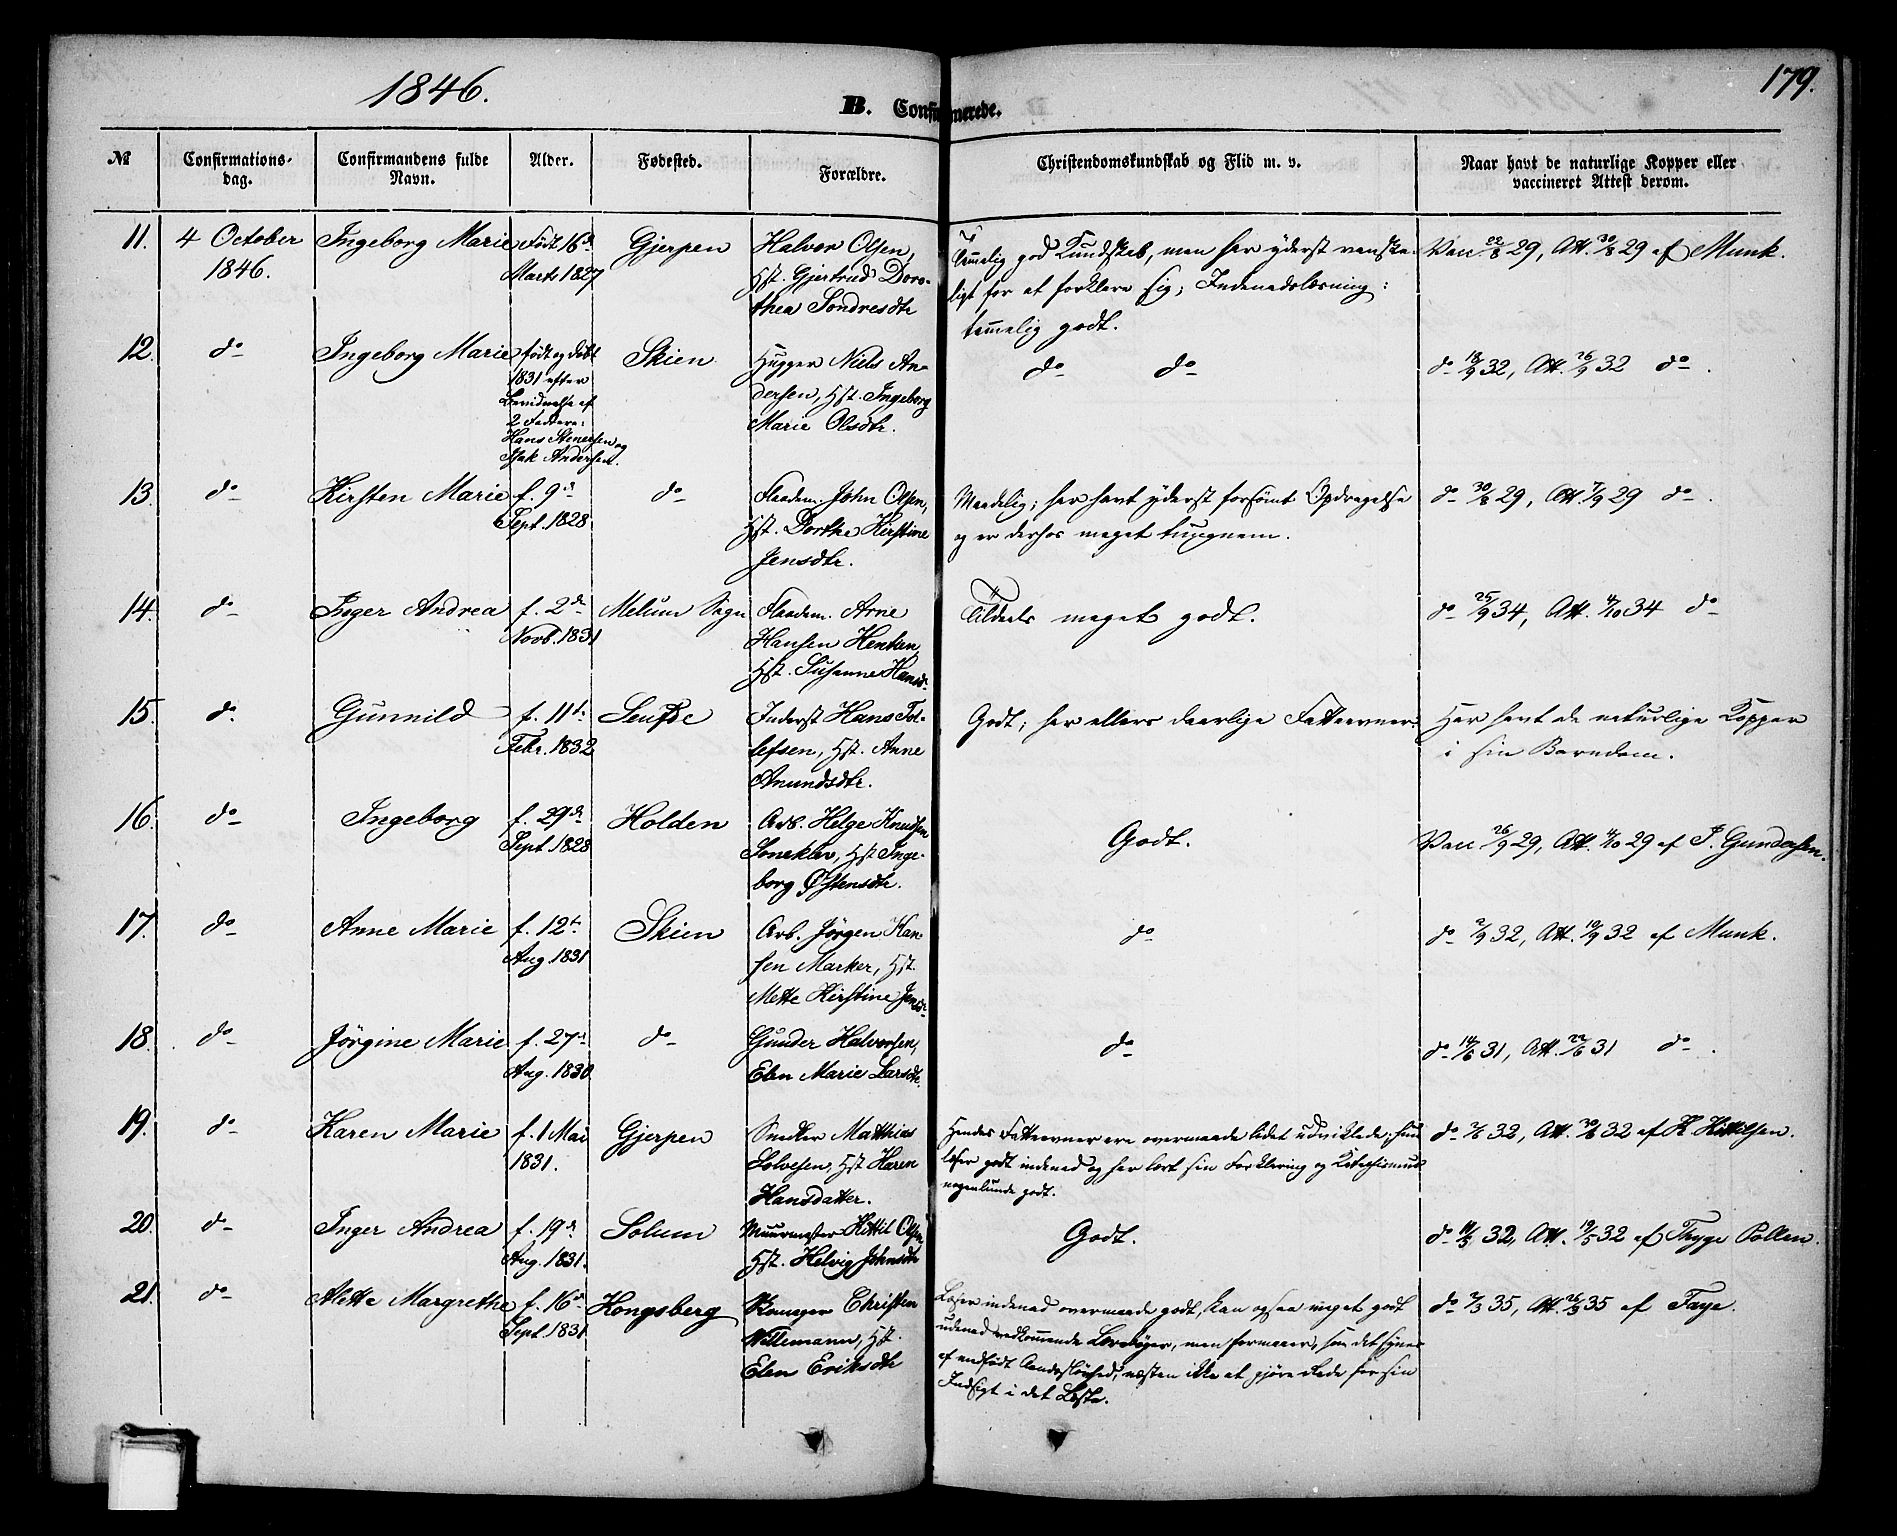 1846.
179.
B. Confirmerede.
№
Confirmations-
dag.
Confirmandens fulde
Navn.
Alder.
Fødested.
Forældre.
Christendomskundskab og Flid m. v.
Naar havt de naturlige Kopper eller
vaccineret Attest derom.
11. 4 October
1846.
Ingeborg Marie
Født 16de
Marts 1827
Gjerpen
Halvor Olsen,
Hst. Gjertrud Doro-
thea Sondresdtr
Temelig god Kundskab, men har yderst vanske-
ligt for at forklare sig; Indenadslæsning:
temelig godt.
Vac. 22/8 29, Att. 30/8 29 af Munk.
12. do
Ingeborg Marie
født og døbt
1831 efter
Bevidnelse af
2 Faddere:
Hans Stenersen og
Isak Andersen.
Skien
Hugger Niels An-
dersen, Hst. Ingeborg
Marie Olsdtr.
do do
do 18/9 32, Att. 26/9 32 do.
13. do
Kirsten Marie
f. 9de
Sept. 1828
do
Flaadem. John Olsen,
Hst. Dorthe Kirstine
Jensdtr.
Maadelig; har havt yderst forsömt Opdragelse
og er derhos meget tungnem.
do 30/8 29, Att. 7/9 29 do.
14. do
Inger Andrea
f. 2de
Novb. 1831
Melum Sogn
Flaadem. Arne
Hansen
Hst. Susanne Hansd.
Tildeels meget godt.
do 25/9 34, Att. 4/10 34 do
15. do
Gunnild
f. 11te
Febr. 1832
Inderst Hans Tol-
lefsen, Hst. Anne
Amundsdtr.
Godt; har ellers daarlige Fatteevner.
Har havt de naturlige Kopper
i sin Barndom.
16. do
Ingeborg
f. 29de
Sept. 1828
Holden
Arb. Helge Knudsen
Hst Inge-
borg Østensdtr.
Godt.
Vac 26/9 29, Att. 4/10 29 af P. Gundersen.
17. do
Anne Marie
f. 12te
Aug. 1831
Skien
Arb. Jörgen Han-
sen Marker, Hst.
Mette Kirstine Jensd.
do
do 2/9 32, Att. 10/9 32 af Munk.
18. do
Jörgine Marie
f. 27de
Aug. 1830
do
Gunder Halvorsen,
Elen Marie Larsdtr.
do
do 14/6 31, Att. 22/6 31 do.
19. do
Karen Marie
f. 1 Mai
1831.
Gjerpen
Snedker Matthias
Solvesen, Hst Karen
Hansdatter.
Hendes Fatteevner ere overmaade lidet udviklede; hun
læser godt indenad og har lært sin Forklaring og Katechismus
nogenlunde godt.
32, Att. 30/6 32 af K. Kittilsen.
20. do
Inger Andrea
f. 19de
Aug. 1831.
Solum
Muurmester Kittil Olsen
Hst. Helvig Johnsdtr
Godt.
do 11/5 32, Att. 19/5 32 af Thyge Pollen.
21. do
Alette Margrethe
f. 16de
Sept. 1831
Kongsberg
Christen
Willemann, Hst.
Elen Eriksdtr
Læser indenad overmaade godt, kan ogsaa meget godt
udenad vedkommende Lærebøger, men formaaer, som det synes
af medfødt Aandssløvhed, næsten ikke at gjøre Rede for sin
Indsigt i det Læste.
35, Att. 26/3 35 af Faye.